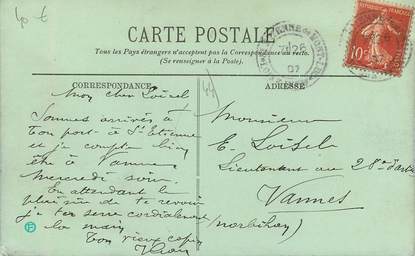 40 €
CARTE POSTALE
Tous les Pays étrangers n'acceptent pas la Correspondance au recto.
(Se renseigner à la Poste).
CORRESPONDANCE
Mon cher Loisel
Sommes arrivés à
bon port à St Etienne
et je compte bien
être à Vannes
Mercredi soir.
En attendant le
plaisir de te revoir
je te serre cordialement
la main
Ton vieux copain
44
ADRESSE
Monsieur
E. Loisel
Lieutenant au 28e d'art
Vannes
(Morbihan)
10
07